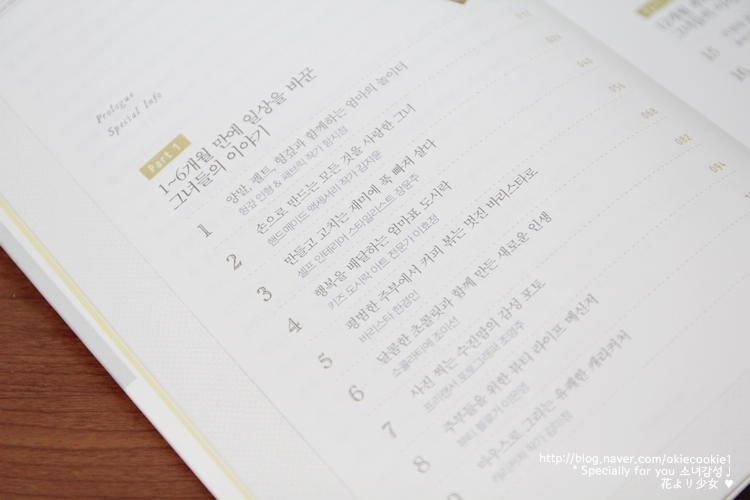 Prologue
Special Info
Part 1
1~6개월 만에 일상을 바꾼
그녀들의 이야기
1 양말, 펠트, 헝겊과 함께하는 엄마의 놀이터
헝겊 인형 & 패브릭 작가 함지정
2 손으로 만드는 모든 것을 사랑한 그녀
핸드메이드 액세서리 작가 김지윤
3 만들고 고치는 재미에 푹 빠져 살다
셀프 인테리어 스타일리스트 장윤주
4 행복을 배달하는 엄마표 도시락
키즈 도시락 아트 전문가 이효정
5 평범한 주부에서 커피 볶는 멋진 바리스타로
바리스타 한경민
6 달콤한 초콜릿과 함께 만든 새로운 인생
쇼콜라티에 조미선
7 사진 찍는 수진맘의 감성 포토
프리랜서 포토그래퍼 조영주
8 주부들을 위한 뷰티 라이프 메신저
뷰티 블로거 이은영
마우스로 그리는 유쾌한 캐리커처
032
040
056
068
082
094
15
16
http://blog.naver.com/okiecookie1
* Specially for you 소녀감성 ♩
花より少女 ♥